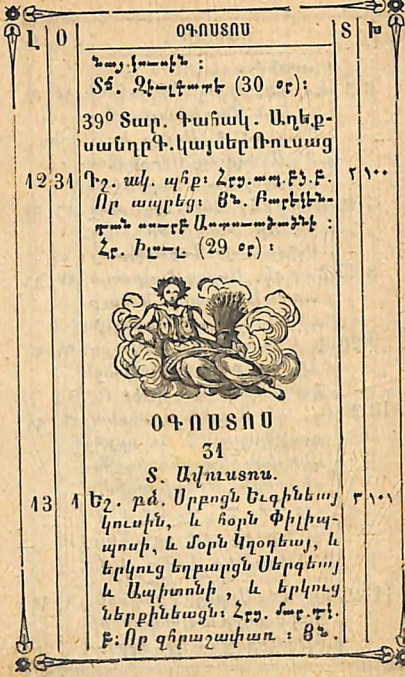 Լ Օ ՕԳՈՍՏՈՍ Տ Խ
Տճ. Զիլհիճէ (30 օր)։
39º Տար. Գահակ. Աղեք-
սանդր Գ. կայսեր Ռուսաց
12 31 Գշ. ակ. պհք։ Հրց. առ. բ.
Որ ապրեց։ Յն. Բարեկեն-
դան սուրբ Աստուածածնի ։
Հր. Իլուլ (29 օր) ։
ՕԳՈՍՏՈՍ
31
Տ. Ավուստոս.
13 1 Եշ. բձ. Սրբոցն Եւգինեայ
կուսին, և հօրն Փիլիպ-
պոսի, և մօրն Կղօդեայ, և
երկուց եղբարցն Սերգեայ
և Ապիտոնի , և երկուց
ներքինեացն։ Հրց.
բ։ Որ զհրաշափառ ։ Յն.